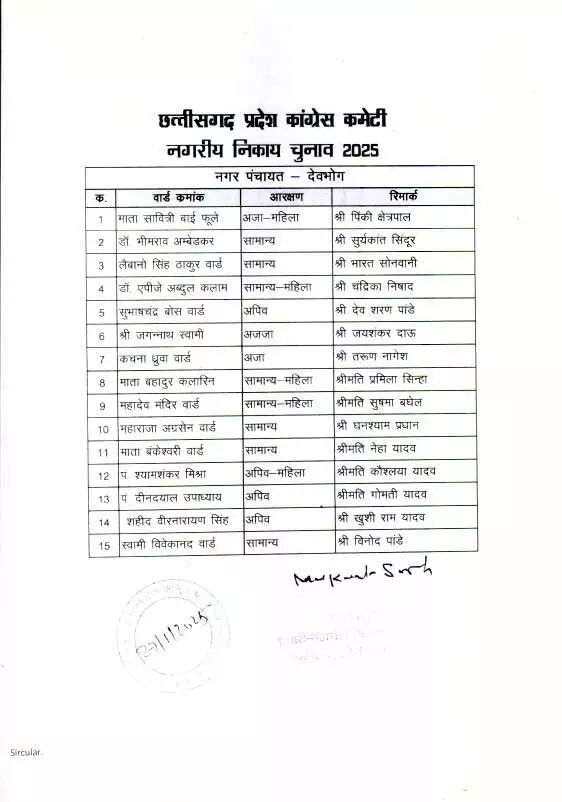 छत्तीसगढ़ प्रदेश कांग्रेस कमेटी
नगरीय निकाय चुनाव 2025
नगर पंचायत – देवभोग
क. वार्ड कमांक आरक्षण रिमार्क
1 माता सावित्री बाई फूले अजा–महिला श्री पिंकी क्षेत्रपाल
2 डॉ. भीमराव अम्बेडकर सामान्य श्री सुर्यकांत सिंदूर
3 लैबानो सिंह ठाकुर वार्ड सामान्य श्री भारत सोनवानी
4 डॉ. एपीजे अब्दुल कलाम सामान्य–महिला श्री चंद्रिका निषाद
5 सुभाषचंद्र बोस वार्ड अपिव श्री देव शरण पांडे
6 श्री जगन्नाथ स्वामी अजजा श्री जयशंकर दाऊ
7 कचना ध्रुवा वार्ड अजा श्री तरूण नागेश
8 माता बहादुर कलारिन सामान्य–महिला श्रीमति प्रमिला सिन्हा
9 महादेव मंदिर वार्ड सामान्य–महिला श्रीमति सुषमा बघेल
10 महाराजा अग्रसेन वार्ड सामान्य श्री घनश्याम प्रधान
11 माता बंकेश्वरी वार्ड सामान्य श्रीमति नेहा यादव
12 पं. श्यामशंकर मिश्रा अपिव–महिला श्रीमति कौश्लया यादव
13 पं दीनदयाल उपाध्याय अपिव श्रीमति गोमती यादव
14 शहीद वीरनारायण सिंह अपिव श्री खुशी राम यादव
15 स्वामी विवेकानंद वार्ड सामान्य श्री विनोद पांडे
27/1/2025
Sircular.